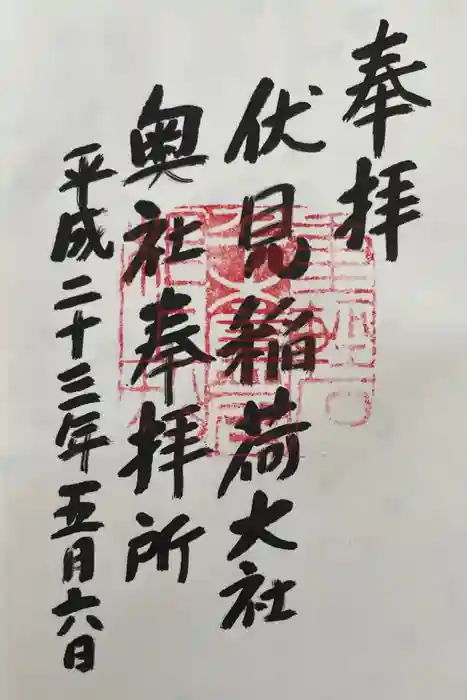 奉拝
伏見稲荷大社
奥社奉拝所
平成二十三年五月六日